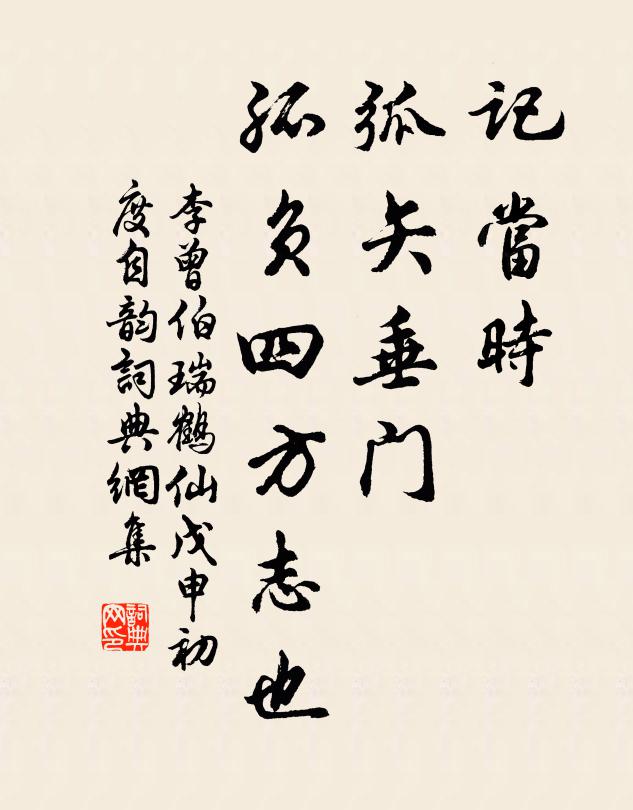 記當時
弧矢垂門
孤負四方志也
李曾伯瑞鶴仙戊申初
度自韵詞典網集
詞典
网印